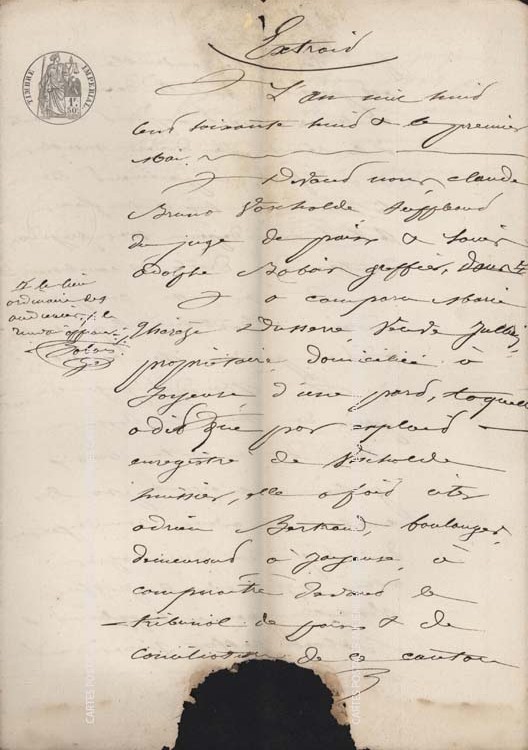 Extrait
TIMBRE IMPERIAL
1F
50c
L'an mil huit
cent soixante huit & le premier
Mai
Devant nous, claude
Bruno Vascholde suppléant
du juge de paix & Louis
Adolphe greffier, dans
le lieu
ordinaire des
audiences
a comparu Marie
Thérèse veuve Jullien
propriétaire domiciliée à
Joyeuse d'une part, laquelle
a dit que par exploit
enregistré de Vascholde
huissier, elle a fait citer
adrien Bertrand, boulanger,
demeurant à Joyeuse, à
comparaître devant le
tribunal de paix & de
conciliation de ce canton
CARTES POST